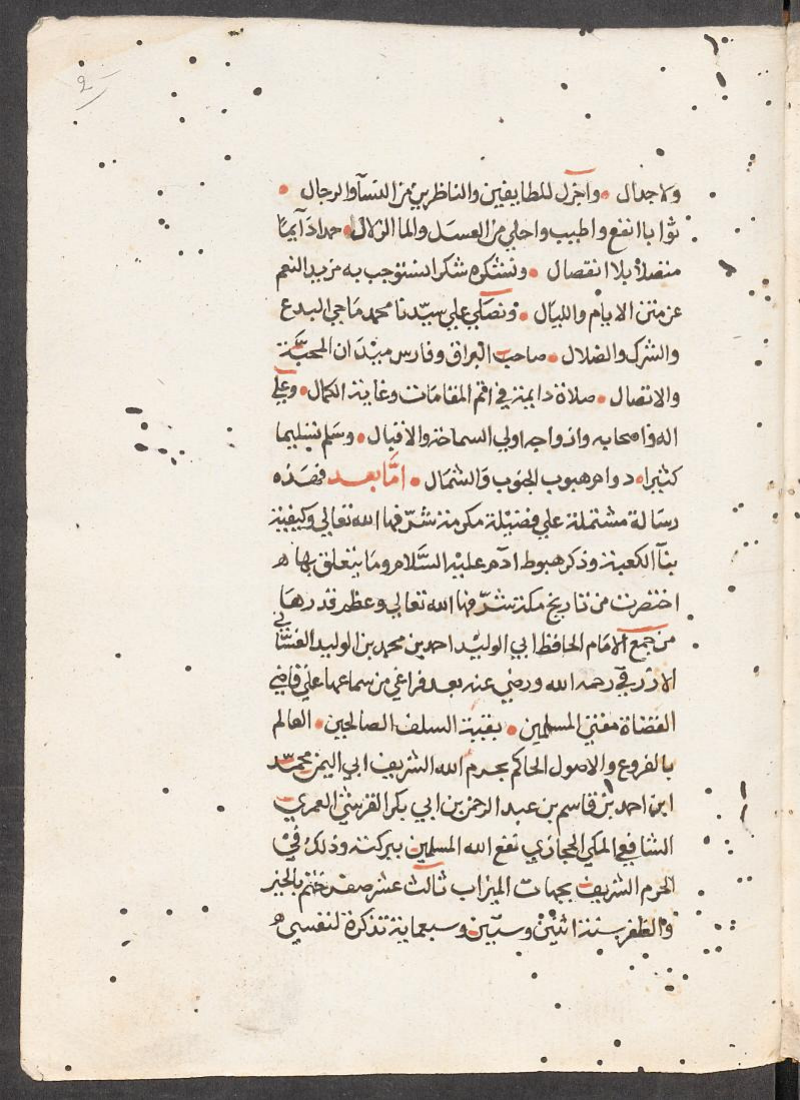 2
ولاجدال • واجزل للطايفين والناظرين من النسآ والرجال •
ثوابا انفع واطيب واحلي من العسل والما الزلال • حمدا دآيمًا
متصلاً بلا انفصال • ونشكره شكرا نستوجب به مزيد النعم
عن منن الايام والليال • ونصلي علي سيّدنا محمد ماحي البدع
والشرك والضلال • صاحب البراق وفارس ميدان المحبّة
والاتصال • صلاة دايمة في اتم المقامات وغاية الكمال • وعلي
اله واصحابه وازواجه اولي السماحة والاقبال • وسلم تسليما
كثيرا • دوام هبوب الجنوب والشمال • امّا بعد فهذه
رسالة مشتملة علي فضيلة مكرمة شرّفها الله تعالي وكيفية
بنآ الكعبة وذكر هبوط ادم عليه السّلام وما يتعلق بها ه
اختصرت من تاريخ مكة شرّفها الله تعالي وعظم قدرها
من جمع الامام الحافظ ابي الوليد احمد بن محمد بن الوليد الغسّاني
الازرقي رحمه الله ورضي عنه بعد فراغي من سماعها علي قاضي
القضاة مفتي المسلمين • بقية السلف الصالحين • العالم
بالفروع والاصول الحاكم بحرم الله الشريف ابي اليمن محمّد
ابن احمد بن قاسم بن عبد الرحمن بن ابي بكر القرشي العمري
الشافعي المكي الحجازي نفع الله المسلمين ببركته وذلك في
الحرم الشريف بجهات الميزاب ثالث عشر صفر ختم بالخير
والظفر سنة اثنين وستين وسبعماية تذكرة لنفسي ه